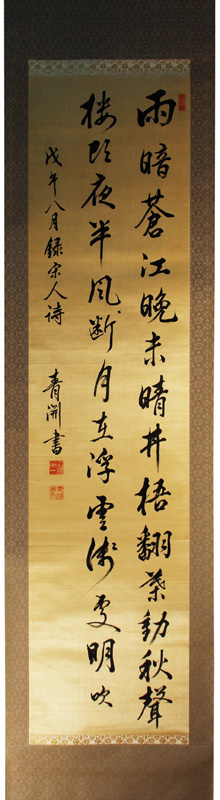 雨暗蒼江晚未晴井梧翻葉動秋聲
樓頭夜半風斷月在浮雲淺處明吹
戊午八月録宋人詩 青書